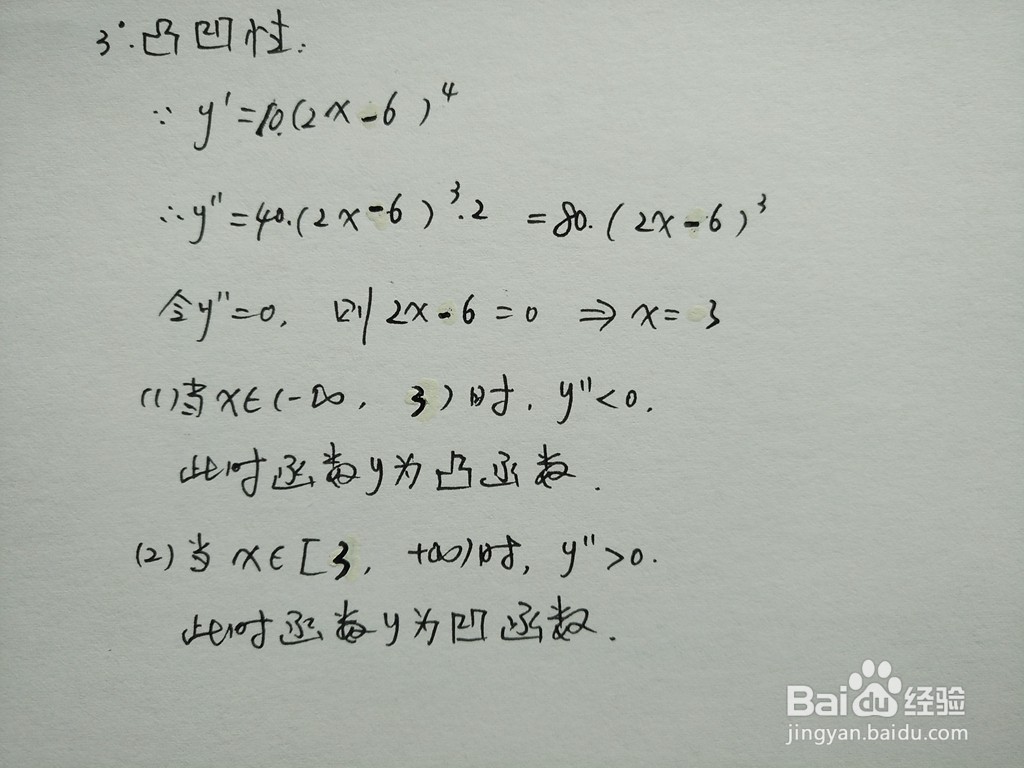 3°.凸凹性:
∵ y'=10.(2x-6)⁴
∴y''=40.(2x-6)³.2 =80.(2x-6)³
令y''=0, 则2x-6=0 ⇒ x=3
(1)当x∈(-∞, 3)时, y''<0.
此时函数y为凸函数.
(2)当x∈[3, +∞)时, y''>0.
此时函数y为凹函数.
Baidu经验
jingyan.baidu.com